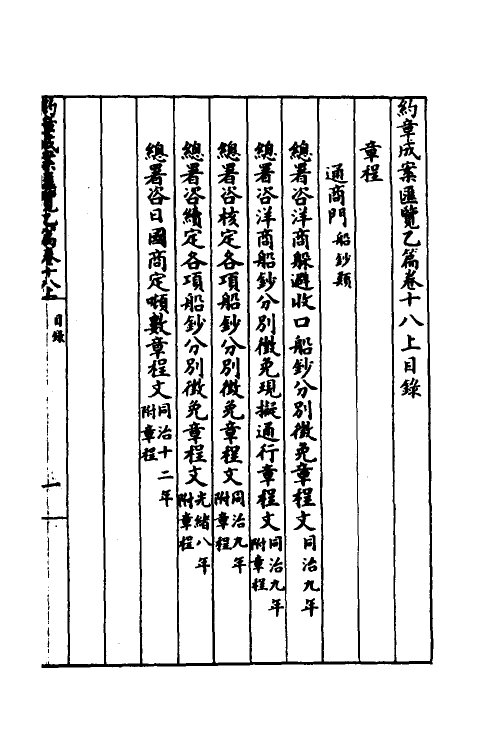 約章成案匯覽乙篇卷十八上目錄
章程
通商門 船鈔類
總署咨洋商躲避收口船鈔分別徵免章程文 同治九年
總署咨洋商船鈔分別徵免現擬通行章程文 同治九年 附章程
總署咨核定各項船鈔分別徵免章程文 同治九年 附章程
總署咨續定各項船鈔分別徵免章程文 光緒八年 附章程
總署咨日國商定噸數章程文 同治十二年 附章程
約章成案匯覽乙篇卷十八上
目錄
一